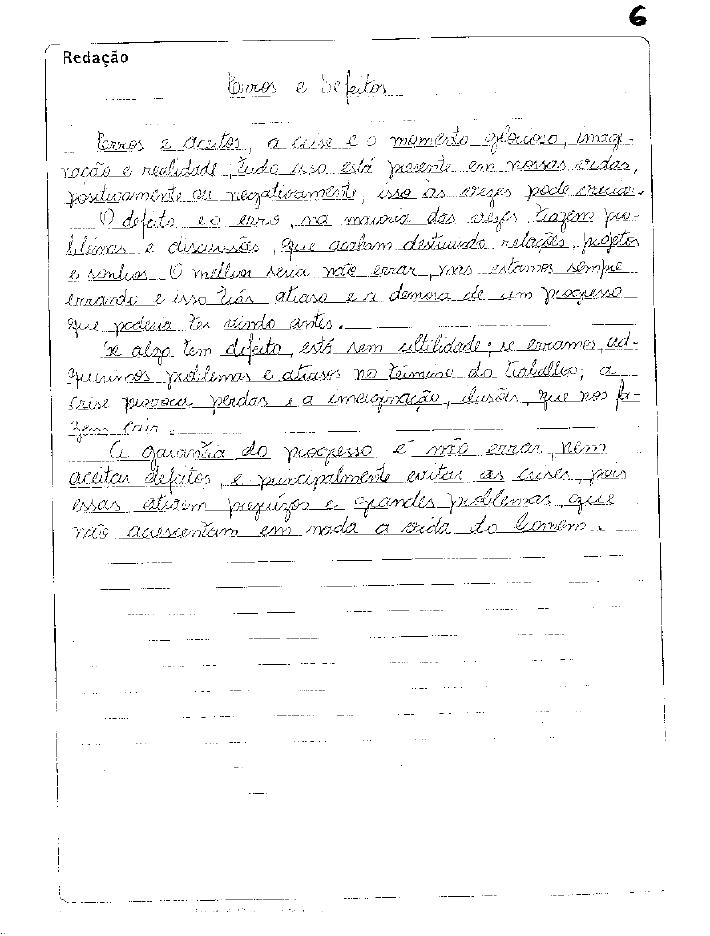 6
Redação
Erros e Defeitos
Erros e acertos, a crise e o momento glorioso, imagi-
nação e realidade, tudo isso está presente em nossas vidas,
positivamente ou negativamente, isso às vezes pode variar.
O defeito e o erro, na maioria das vezes trazem pro-
blemas e discussões, que acabam destruindo relações, projetos
e sonhos. O melhor seria não errar, mas estamos sempre
errando e isso trás atraso e a demora de um progresso
que poderia ter vindo antes.
Se algo tem defeito, está sem ultilidade; se erramos, ad-
querimos problemas e atrasos no término do trabalho; a
crise provoca perdas e a imaginação, ilusão, que nos fa-
zem cair.
A garantia do progresso é não errar, nem
aceitar defeitos, e principalmente evitar as crises, pois
essas atraem prejuízos e grandes problemas, que
não acrescentam em nada a vida do homem.